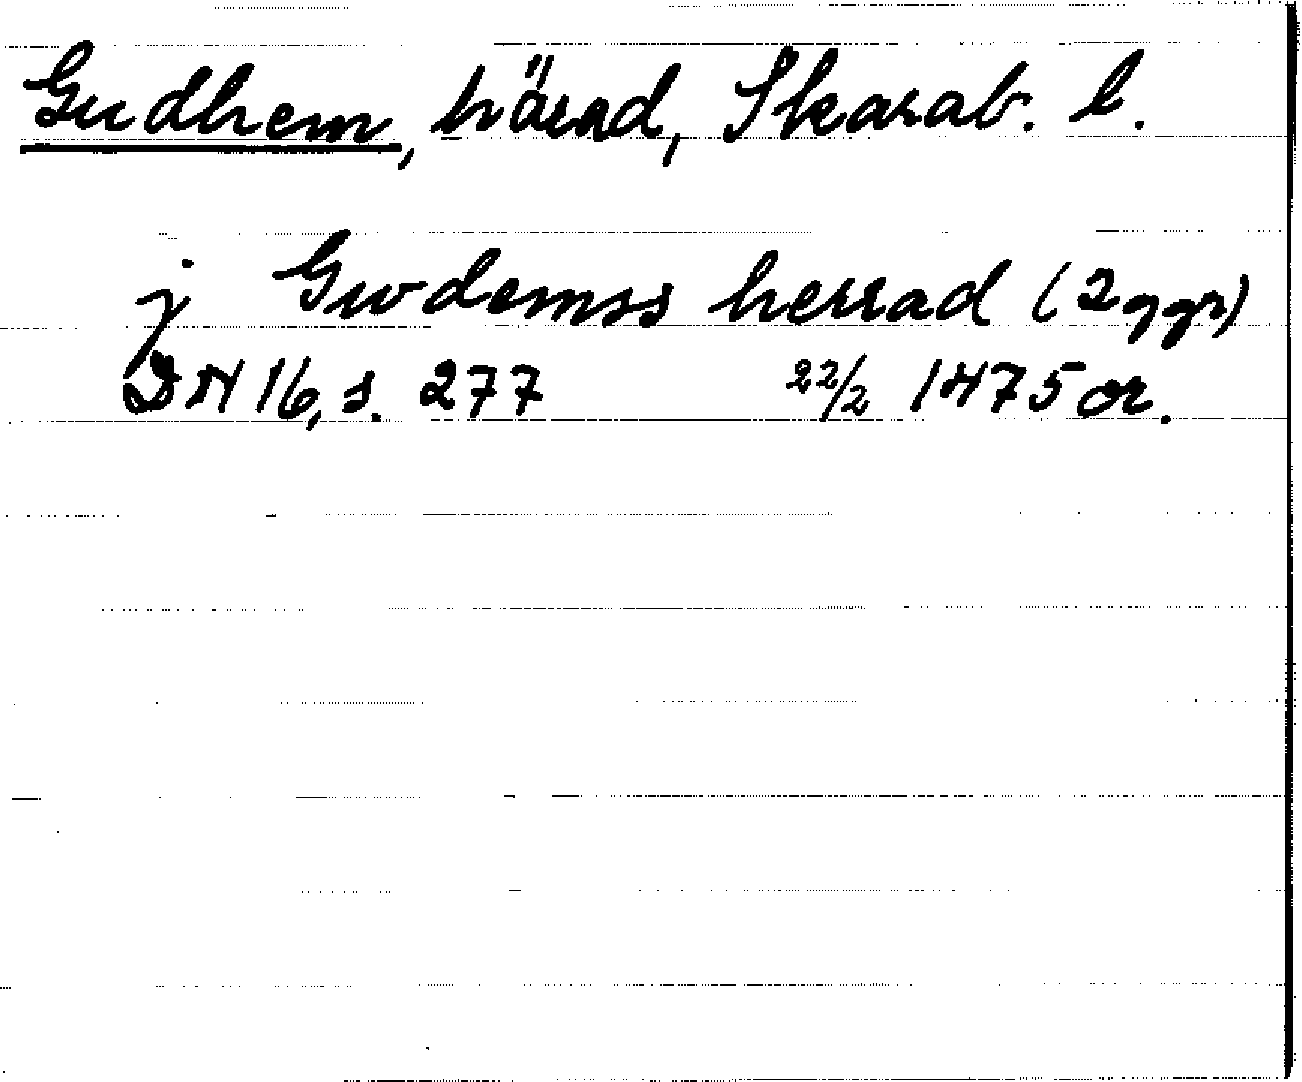 Gudhem, härad, Skarab. l.
j Gwdemss herrad (2 ggr)
DN 16, s. 277 22/2 1475 or.